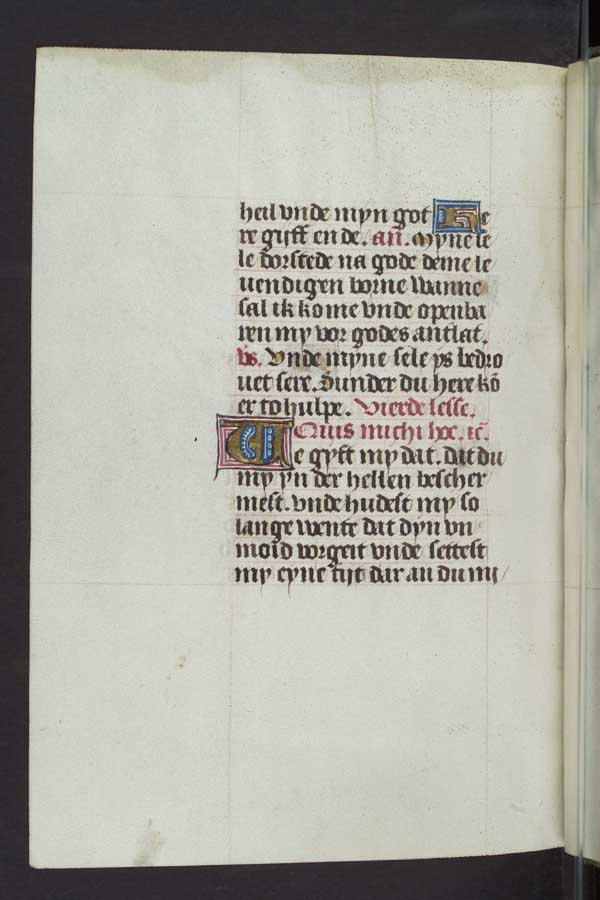 heil vnde myn got He
re gyff en de. an̄. Myne se
le dorstede na gode deme le
uendigen borne wanne
sal ik kome vnde openba
ren my vor godes antlat.
vs. Vnde myne sele ys bedro
uet sere. Sunder du here kō
er to hulpe. Vierde lesse.
Quis michi hoc. ⁊c̄.
We gyft my dat. dat du
my yn der hellen bescher
mest. vnde hudest my so
lange wente dat dyn vn
moid vorgeit vnde settest
my eyne tijt dar an du mi